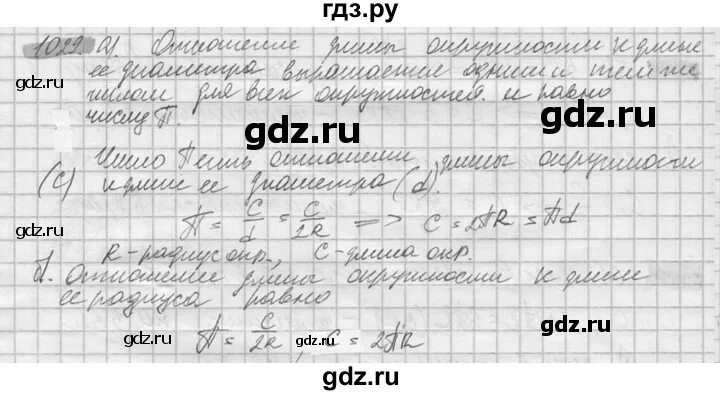 гдз.ру
1029. а) Отношение длины окружности к длине
gdz.ru
её диаметра выражается одним и тем же
gdz.ru
числом для всех окружностей и равно
числу П.
gdz.ru
Число П есть отношение длины окружности
(C) к длине её диаметра (d).
gdz.ru
П = C/d = C/2R => C = 2ПR = Пd
R - радиус окр., C - длина окр.
б). Отношение длины окружности к длине
её радиуса равно
gdz.ru
П = C/2R , C = 2ПR
gdz.ru